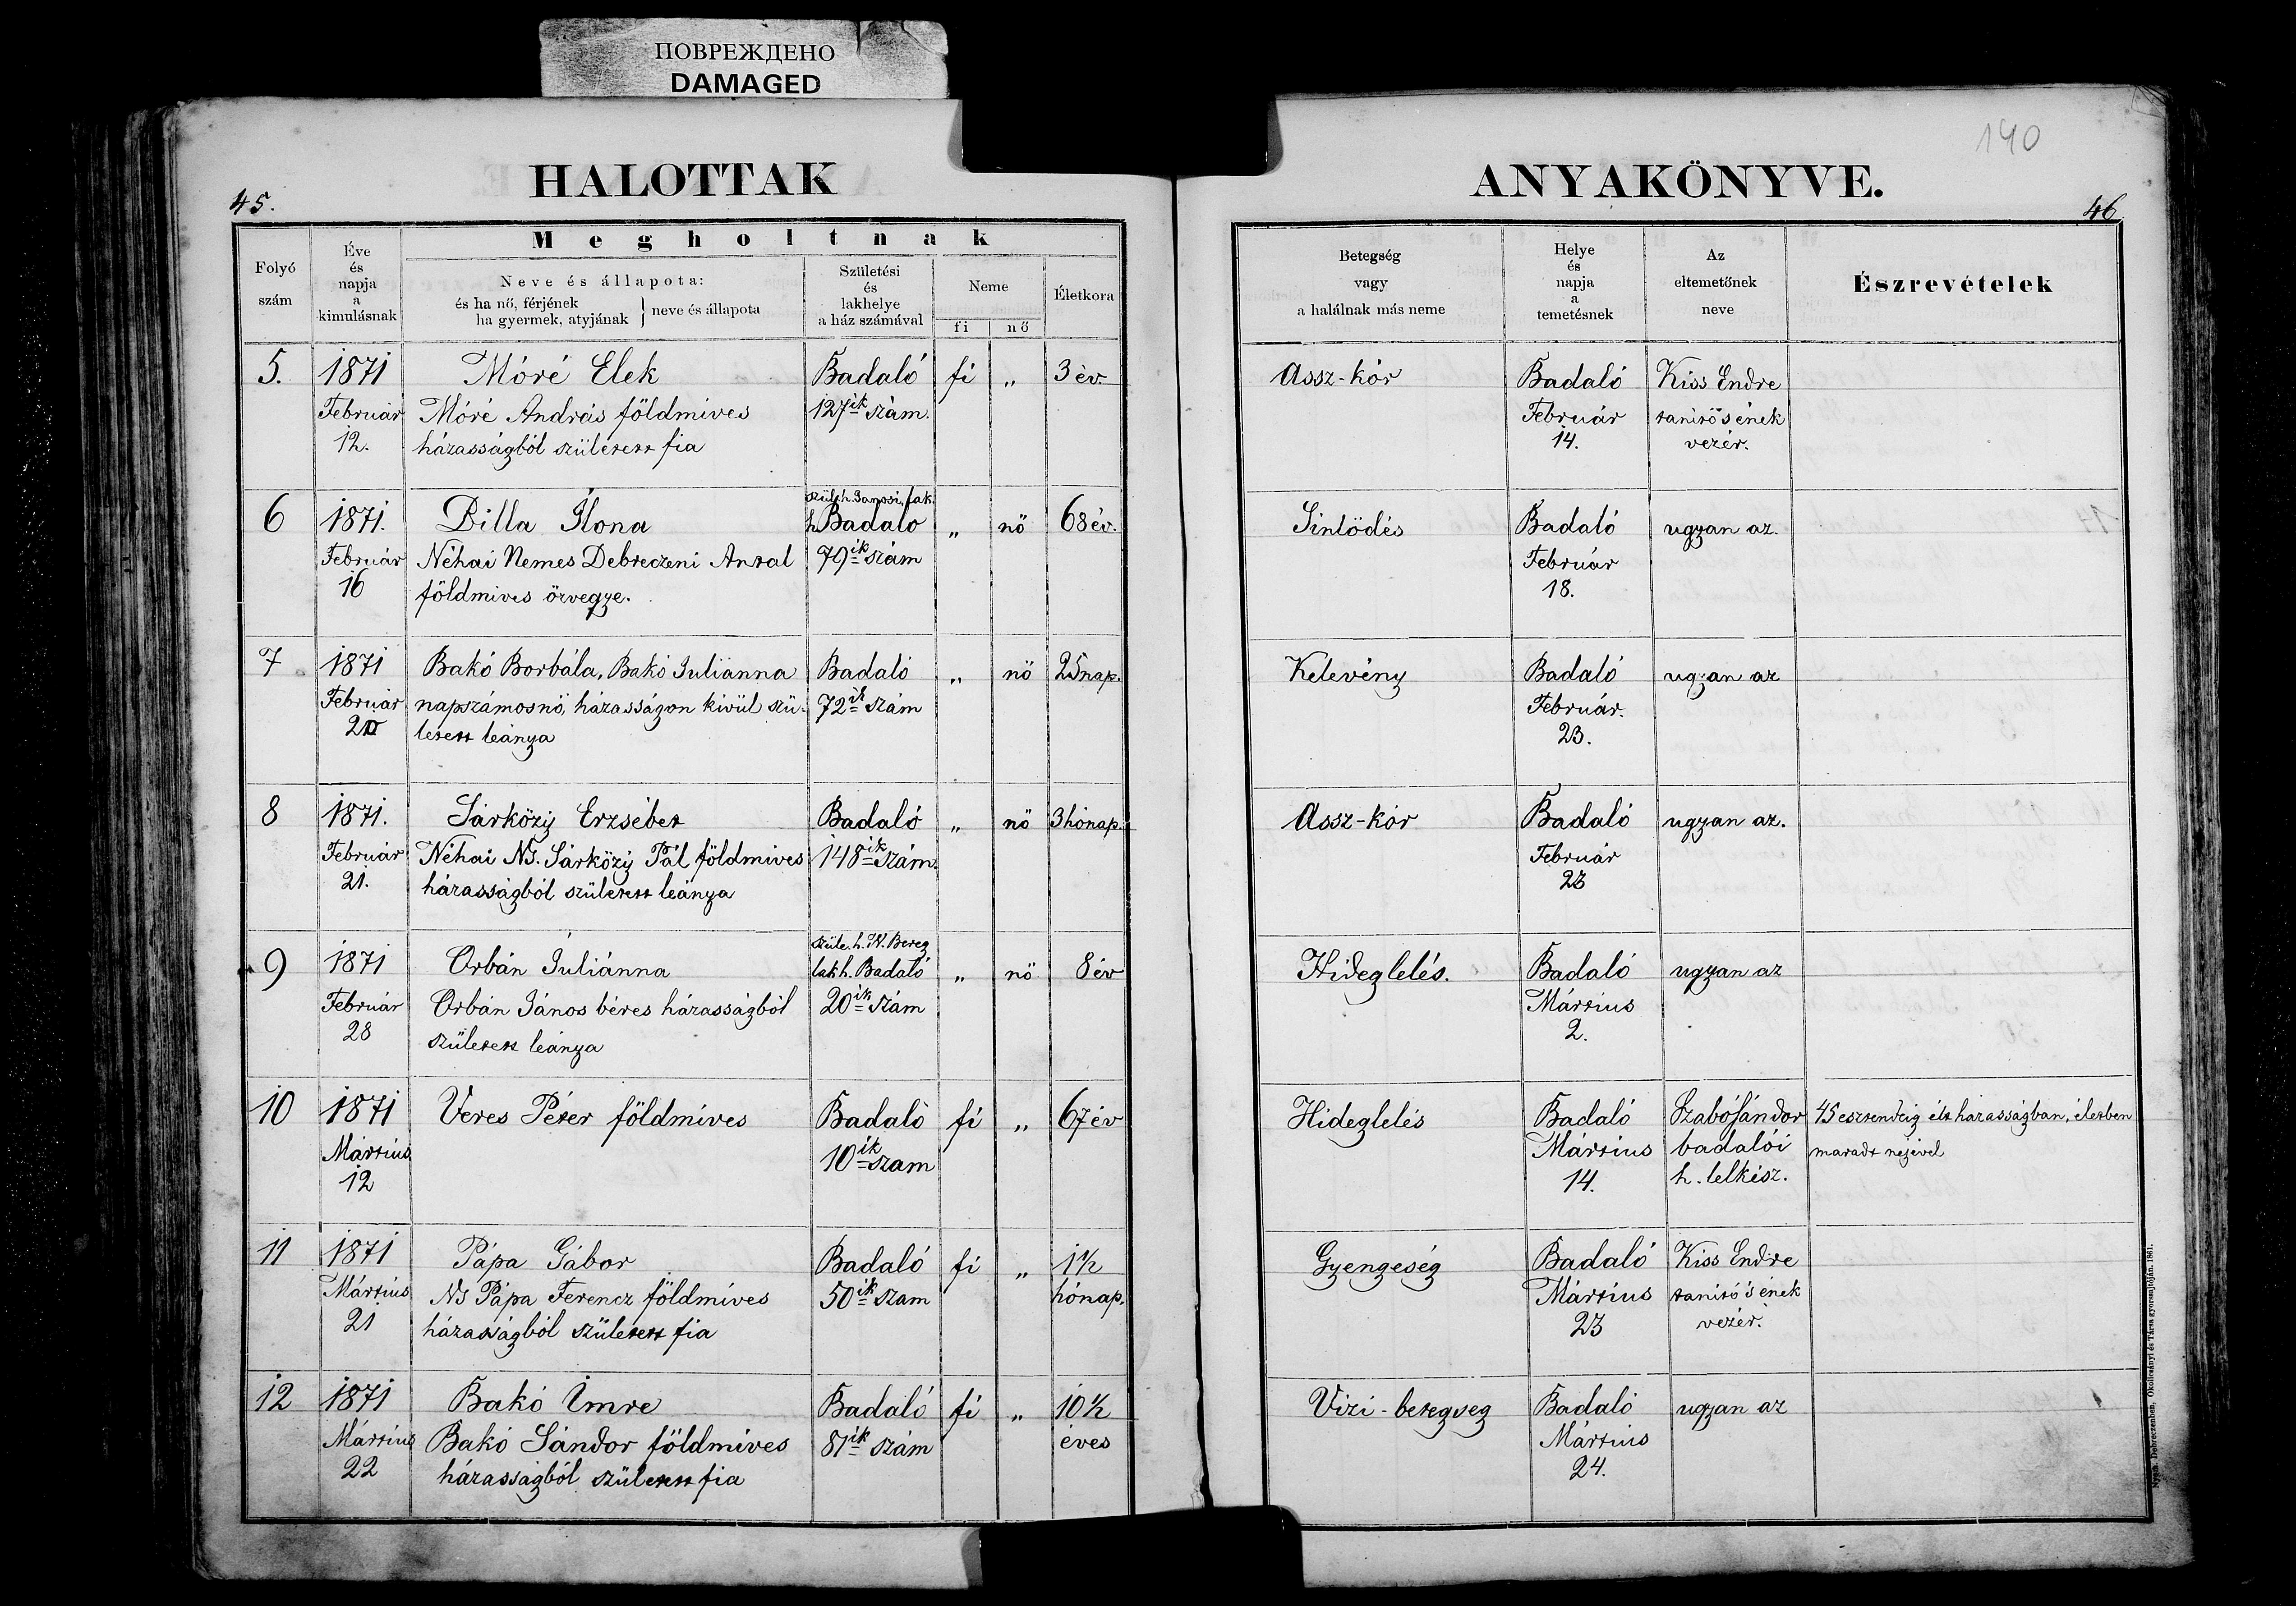 ПОВРЕЖДЕНО
DAMAGED
HALOTTAK
45.
Megholtnak
Folyó szám
Éve és napja a kimulásnak
Neve és állapota:
és ha nő, férjének
ha gyermek, atyjának
neve és állapota
Születési és lakhelye a ház számával
Neme
fi nő
Életkora
5. 1871 Móré Elek Badaló fi „ 3 év.
Február Móré András földmives 127ik szám.
12. házasságból született fia
szül.h. Janosi, lak.
6 1871. Dilla Ilona h. Badaló „ nő 68 év.
Február Néhai Nemes Debreczeni Antal 79ik szám
16 földmives özvegye.
7 1871 Bakó Borbála, Bakó Juliánna Badaló „ nő 25 nap.
Február napszámosnő, házasságon kivül szü- 72ik szám
letett leánya
8 1871. Sárközy Erzsébet Badaló „ nő 3 hónap.
Február Néhai Ns. Sárközy Pál földmives 148ik szám.
21. házasságból született leánya
szüle.h. N. Bereg
9 1871 Orbán Juliánna lakh. Badaló „ nő 8 év
Február Orbán János béres házasságból 20ik szám
28 született leánya
10 1871 Veres Péter földmives Badaló fi „ 67 év
Mártius 10ik szam
12
11 1871 Pápa Gábor Badaló fi „ 1½
Mártius Ns Pápa Ferencz földmives 50ik szam hónap.
21 házasságból született fia
12 1871 Bakó Imre Badaló fi „ 10½
Mártius Bakó Sándor földmives 81ik szám éves
22 házasságból született fia
190
ANYAKÖNYVE.
46
Betegség vagy a halálnak más neme
Helye és napja a temetésnek
Az eltemetőnek neve
Észrevételek
Assz-kór Badaló Kiss Endre
Február tanító s ének
14. vezér.
Sinlödés Badaló ugyan az.
Február
18.
Kelevény Badaló ugyan az
Február.
23.
Assz-kór Badaló ugyan az.
Február
23
Hideglelés. Badaló ugyan az
Mártius
2.
Hideglelés Badaló Szabó Sándor 45 esztendeig élt házasságban, életben
Mártius badalói maradt nejével
14. h. lelkész.
Gyengeség Badaló Kiss Endre
Mártius tanító s ének
23 vezér.
Vizi-betegseg Badaló ugyan az
Mártius
24.